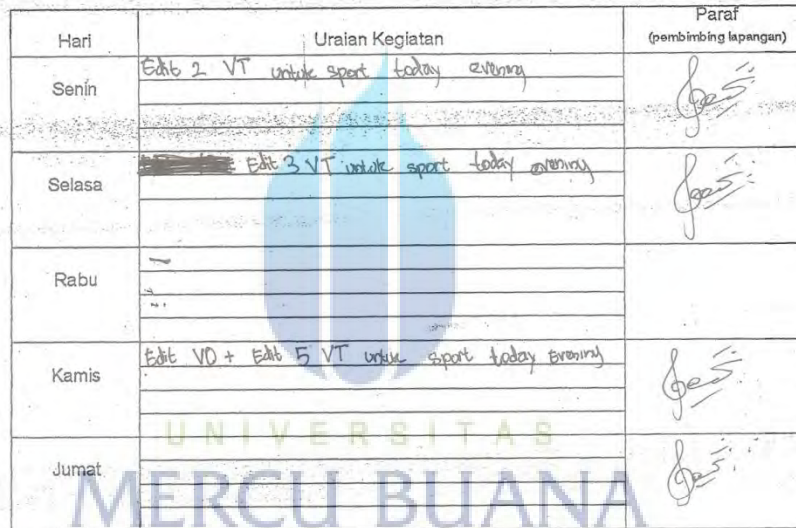 Hari Uraian Kegiatan Paraf
(pembimbing lapangan)
Senin Edit 2 VT untuk sport today evening
Selasa Edit 3 VT untuk sport today evening
Rabu
Kamis Edit VO + Edit 5 VT untuk sport today Evening
UNIVERSITAS
Jumat
MERCU BUANA